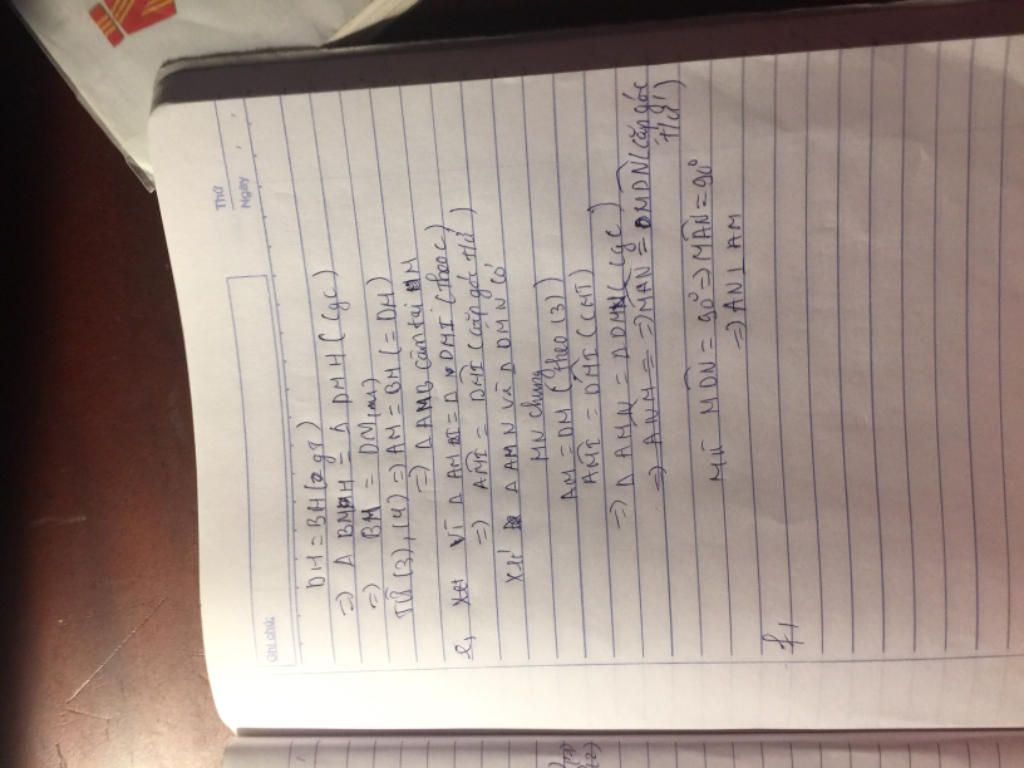 Thứ
Ngày
GHI CHÚ
DH = BH (gg)
=> Δ BMH = Δ DMH (cgc)
=> BM = DM (4)
Từ (3), (4) => AM = BM (= DM)
=> Δ AMB cân tại M
e, Vì Δ AMI = Δ DMI (theo c)
=> AMI = DMI (cặp góc t/ứ)
Xét Δ AMN và Δ DMN có
MN chung
AM = DM (theo (3))
AMI = DMI (CMT)
=> Δ AMN = Δ DMN (cgc)
=> ANM = => MAN = MDN (cặp góc
t/ứ)
Mà MDN = 90° => MAN = 90°
=> AN ⊥ AM
f,